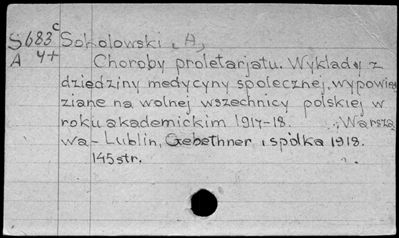 S683c Sokolowski, A,
A 4+ Choroby proletarjatu. Wyklady z
dziedziny medycyny spolecznej, wypowie
ziane na wolnej wszechnicy polskiej w
roku akademickim 1917-18. Warsza
wa-Lublin, Gebethner i spólka 1918.
145str.